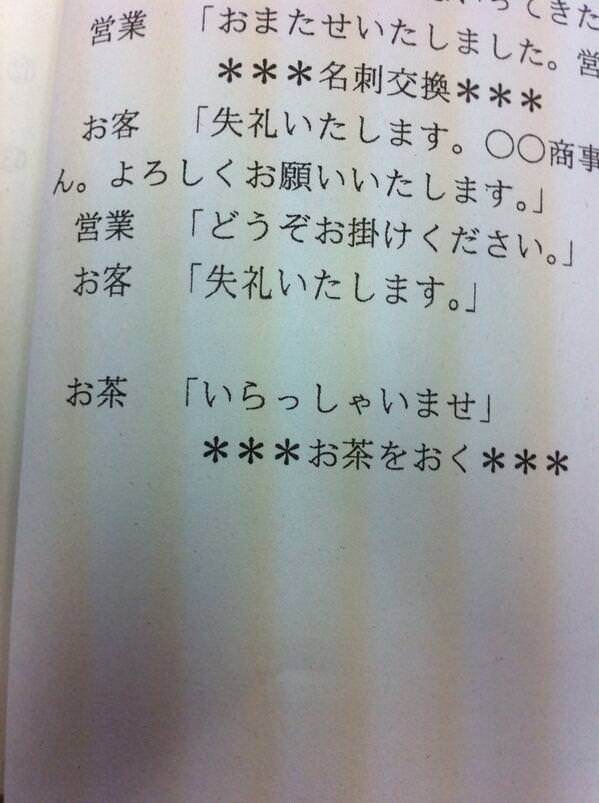 いってきた
営業　「おまたせいたしました。営
＊＊＊名刺交換＊＊＊
お客　「失礼いたします。〇〇商事
ん。よろしくお願いいたします。」
営業　「どうぞお掛けください。」
お客　「失礼いたします。」
お茶　「いらっしゃいませ」
＊＊＊お茶をおく＊＊＊